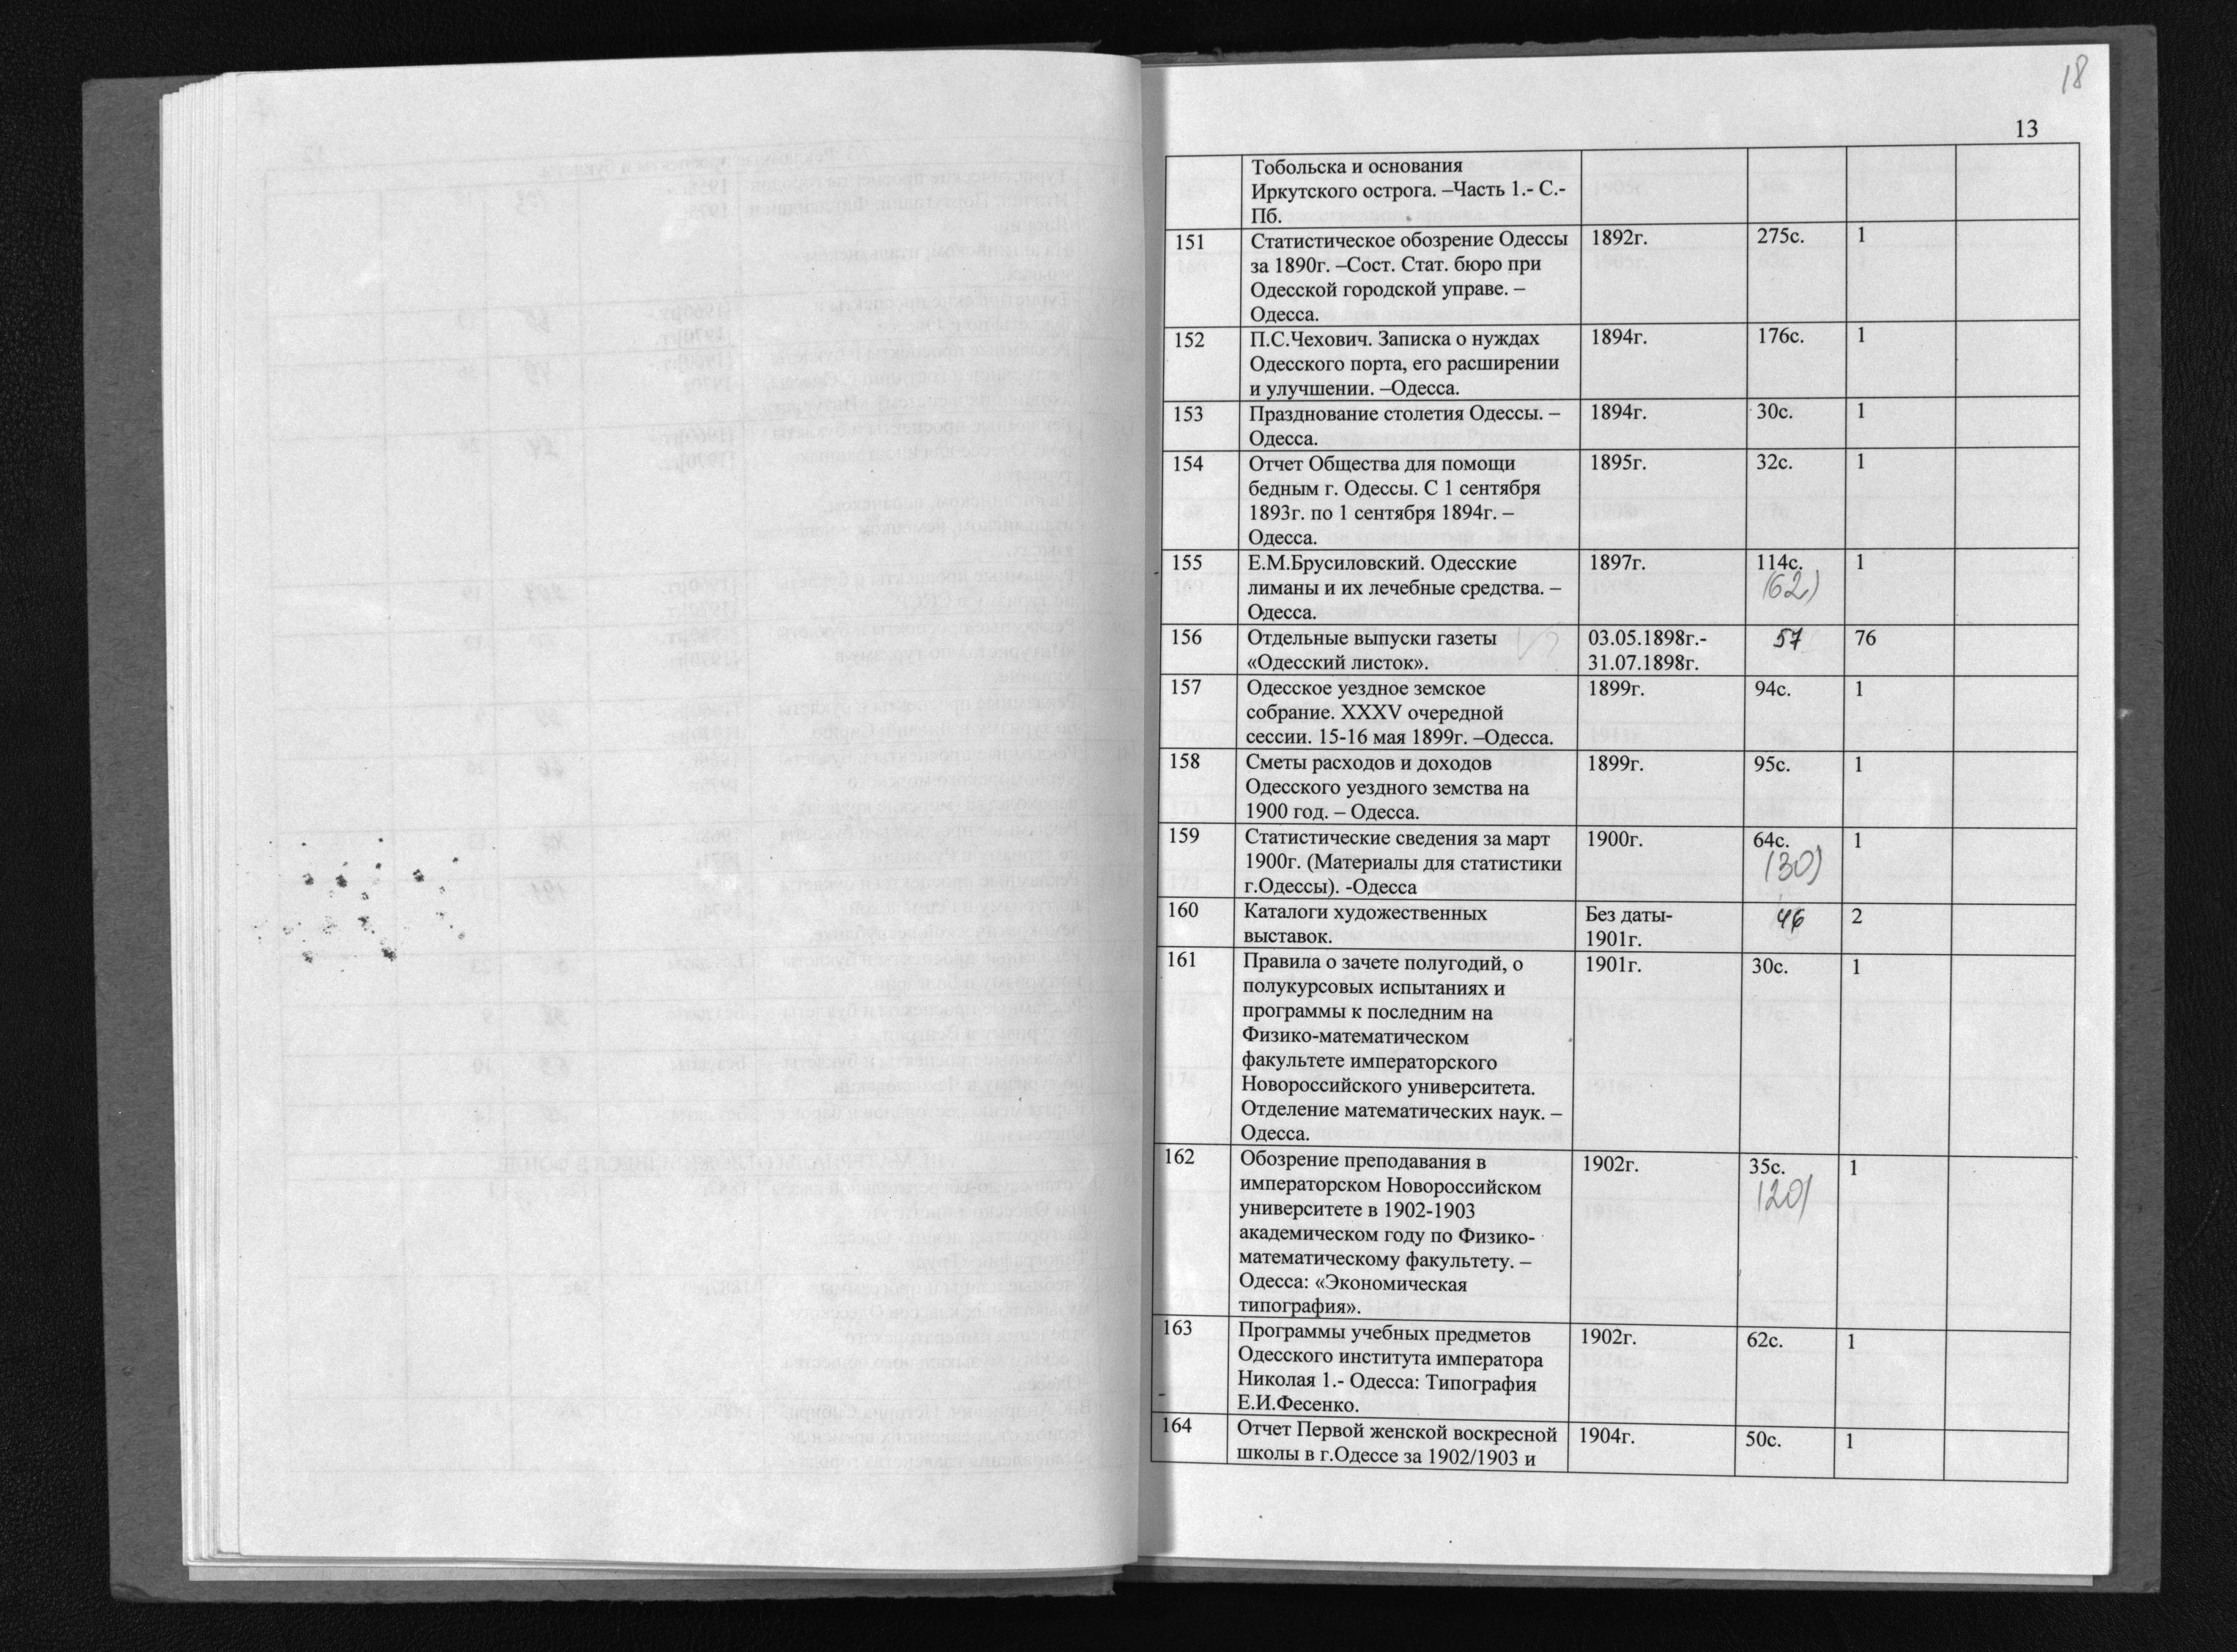 18
13
Тобольска и основания
Иркутского острога. –Часть 1.- С.-
Пб.
151 Статистическое обозрение Одессы 1892г. 275с. 1
за 1890г. –Сост. Стат. бюро при
Одесской городской управе. –
Одесса.
152 П.С.Чехович. Записка о нуждах 1894г. 176с. 1
Одесского порта, его расширении
и улучшении. –Одесса.
153 Празднование столетия Одессы. – 1894г. 30с. 1
Одесса.
154 Отчет Общества для помощи 1895г. 32с. 1
бедным г. Одессы. С 1 сентября
1893г. по 1 сентября 1894г. –
Одесса.
155 Е.М.Брусиловский. Одесские 1897г. 114с. 1
лиманы и их лечебные средства. – (62)
Одесса.
156 Отдельные выпуски газеты 03.05.1898г.- 57 76
«Одесский листок». 31.07.1898г.
157 Одесское уездное земское 1899г. 94с. 1
собрание. XXXV очередной
сессии. 15-16 мая 1899г. –Одесса.
158 Сметы расходов и доходов 1899г. 95с. 1
Одесского уездного земства на
1900 год. – Одесса.
159 Статистические сведения за март 1900г. 64с. 1
1900г. (Материалы для статистики (30)
г.Одессы). -Одесса
160 Каталоги художественных Без даты- 46 2
выставок. 1901г.
161 Правила о зачете полугодий, о 1901г. 30с. 1
полукурсовых испытаниях и
программы к последним на
Физико-математическом
факультете императорского
Новороссийского университета.
Отделение математических наук. –
Одесса.
162 Обозрение преподавания в 1902г. 35с. 1
императорском Новороссийском (20)
университете в 1902-1903
академическом году по Физико-
математическому факультету. –
Одесса: «Экономическая
типография».
163 Программы учебных предметов 1902г. 62с. 1
Одесского института императора
Николая 1.- Одесса: Типография
Е.И.Фесенко.
164 Отчет Первой женской воскресной 1904г. 50с. 1
школы в г.Одессе за 1902/1903 и